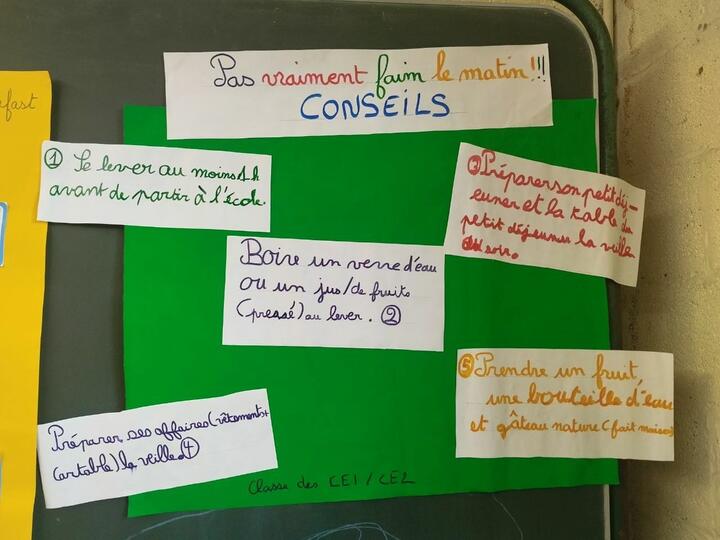 Pas vraiment faim le matin !!!
CONSEILS
① Se lever au moins 1h
avant de partir à l'école.
Boire un verre d'eau
ou un jus/de fruits
(pressé) au lever. ②
③ Préparer son petit déj-
euner et la table du
petit déjeuner la veille
au soir.
Préparer ses affaires (vêtements +
cartable) la veille. ④
⑤ Prendre un fruit,
une bouteille d'eau
et gâteau nature (fait maison)
Classe des CE1 / CE2
fast